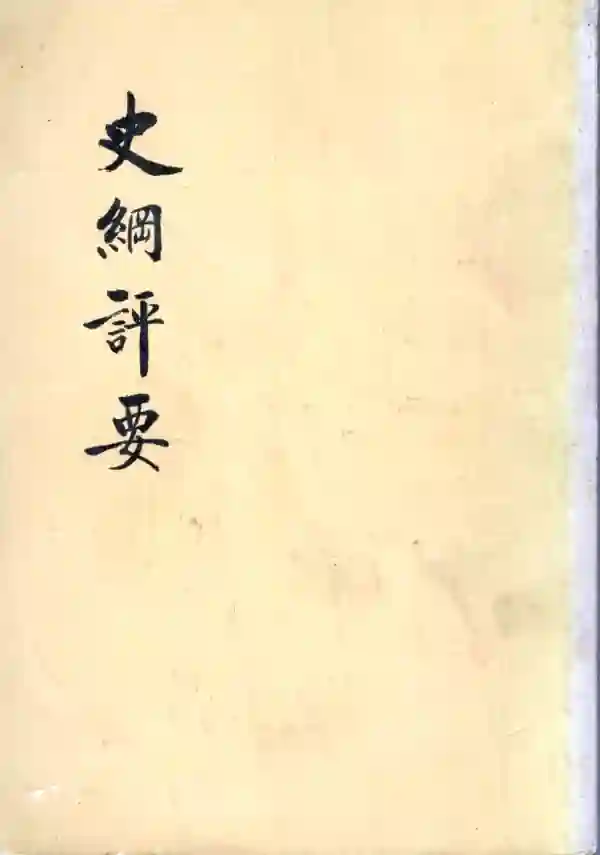 史綱評要